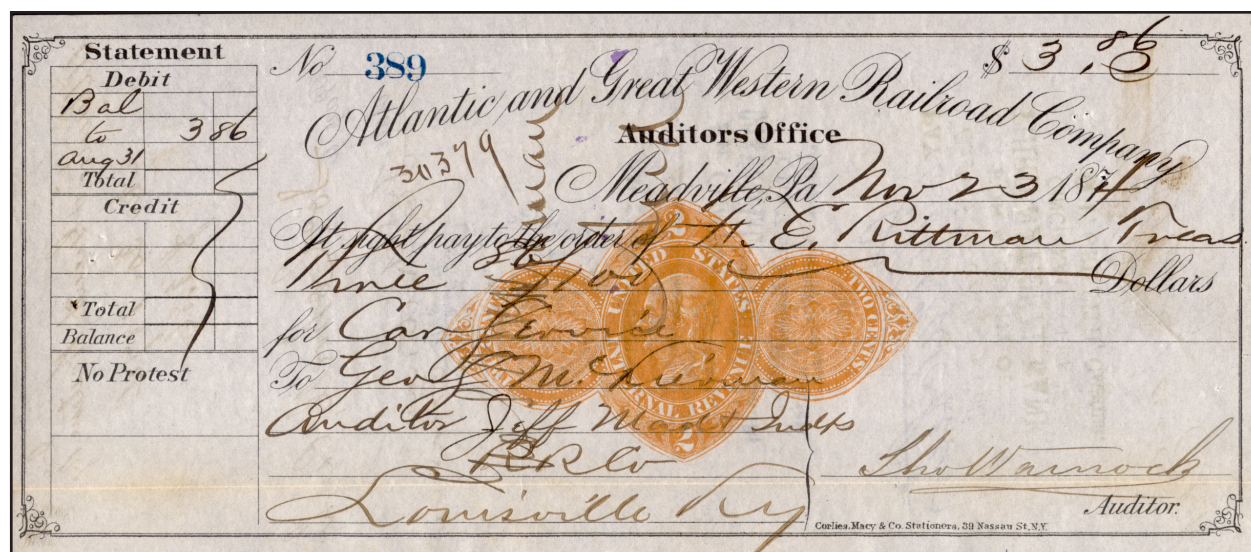 Statement
Debit
Bal
to 3 86
Aug 31
Total
Credit
Total
Balance
No Protest
No 389
$ 3.86
Atlantic and Great Western Railroad Company
Auditors Office
30379
Meadville, Pa Nov 23 1871
At sight pay to the order of H. E. Rittman Treas.
Three 86/100 Dollars
for Car Service
To Geo
Auditor Jeff Mad & Indps
RR Co
Louisville Ky
Tho Warnock
Auditor.
UNITED STATES
INTERNAL REVENUE
TWO CENTS
2
2
Corlies, Macy & Co. Stationers, 39 Nassau St, N.Y.